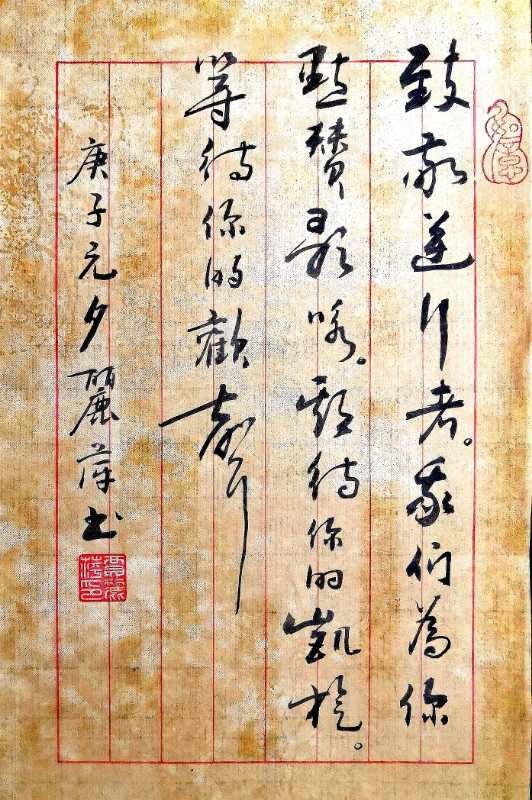 致敬逆行者。我们為你
點讚歌咏。期待你的凱旋。
等待你的歡聲
庚子元夕麗萍书